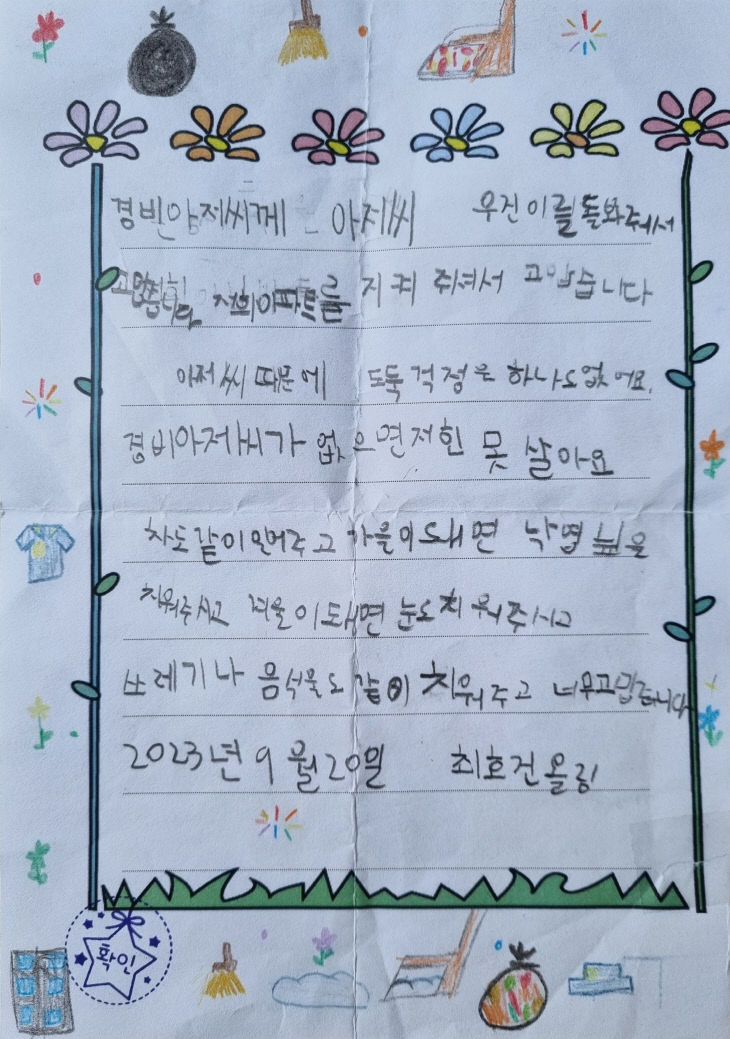 경비아저씨께 아저씨 우진이를돌봐주셔서
고맙습니다 저희아파트를 지켜 주셔서 고맙습니다
아저씨 때문에 도둑걱정은 하나도없어요.
경비아저씨가 없으면저힌 못 살아요
차도같이밀어주고 가을이돼면 낙엽을
치워주시고 겨울이돼면 눈도치워주시고
쓰레기나 음식물도 같이 치워주고 너무고맙습니다
2023년 9월20일 최호건올림
확인